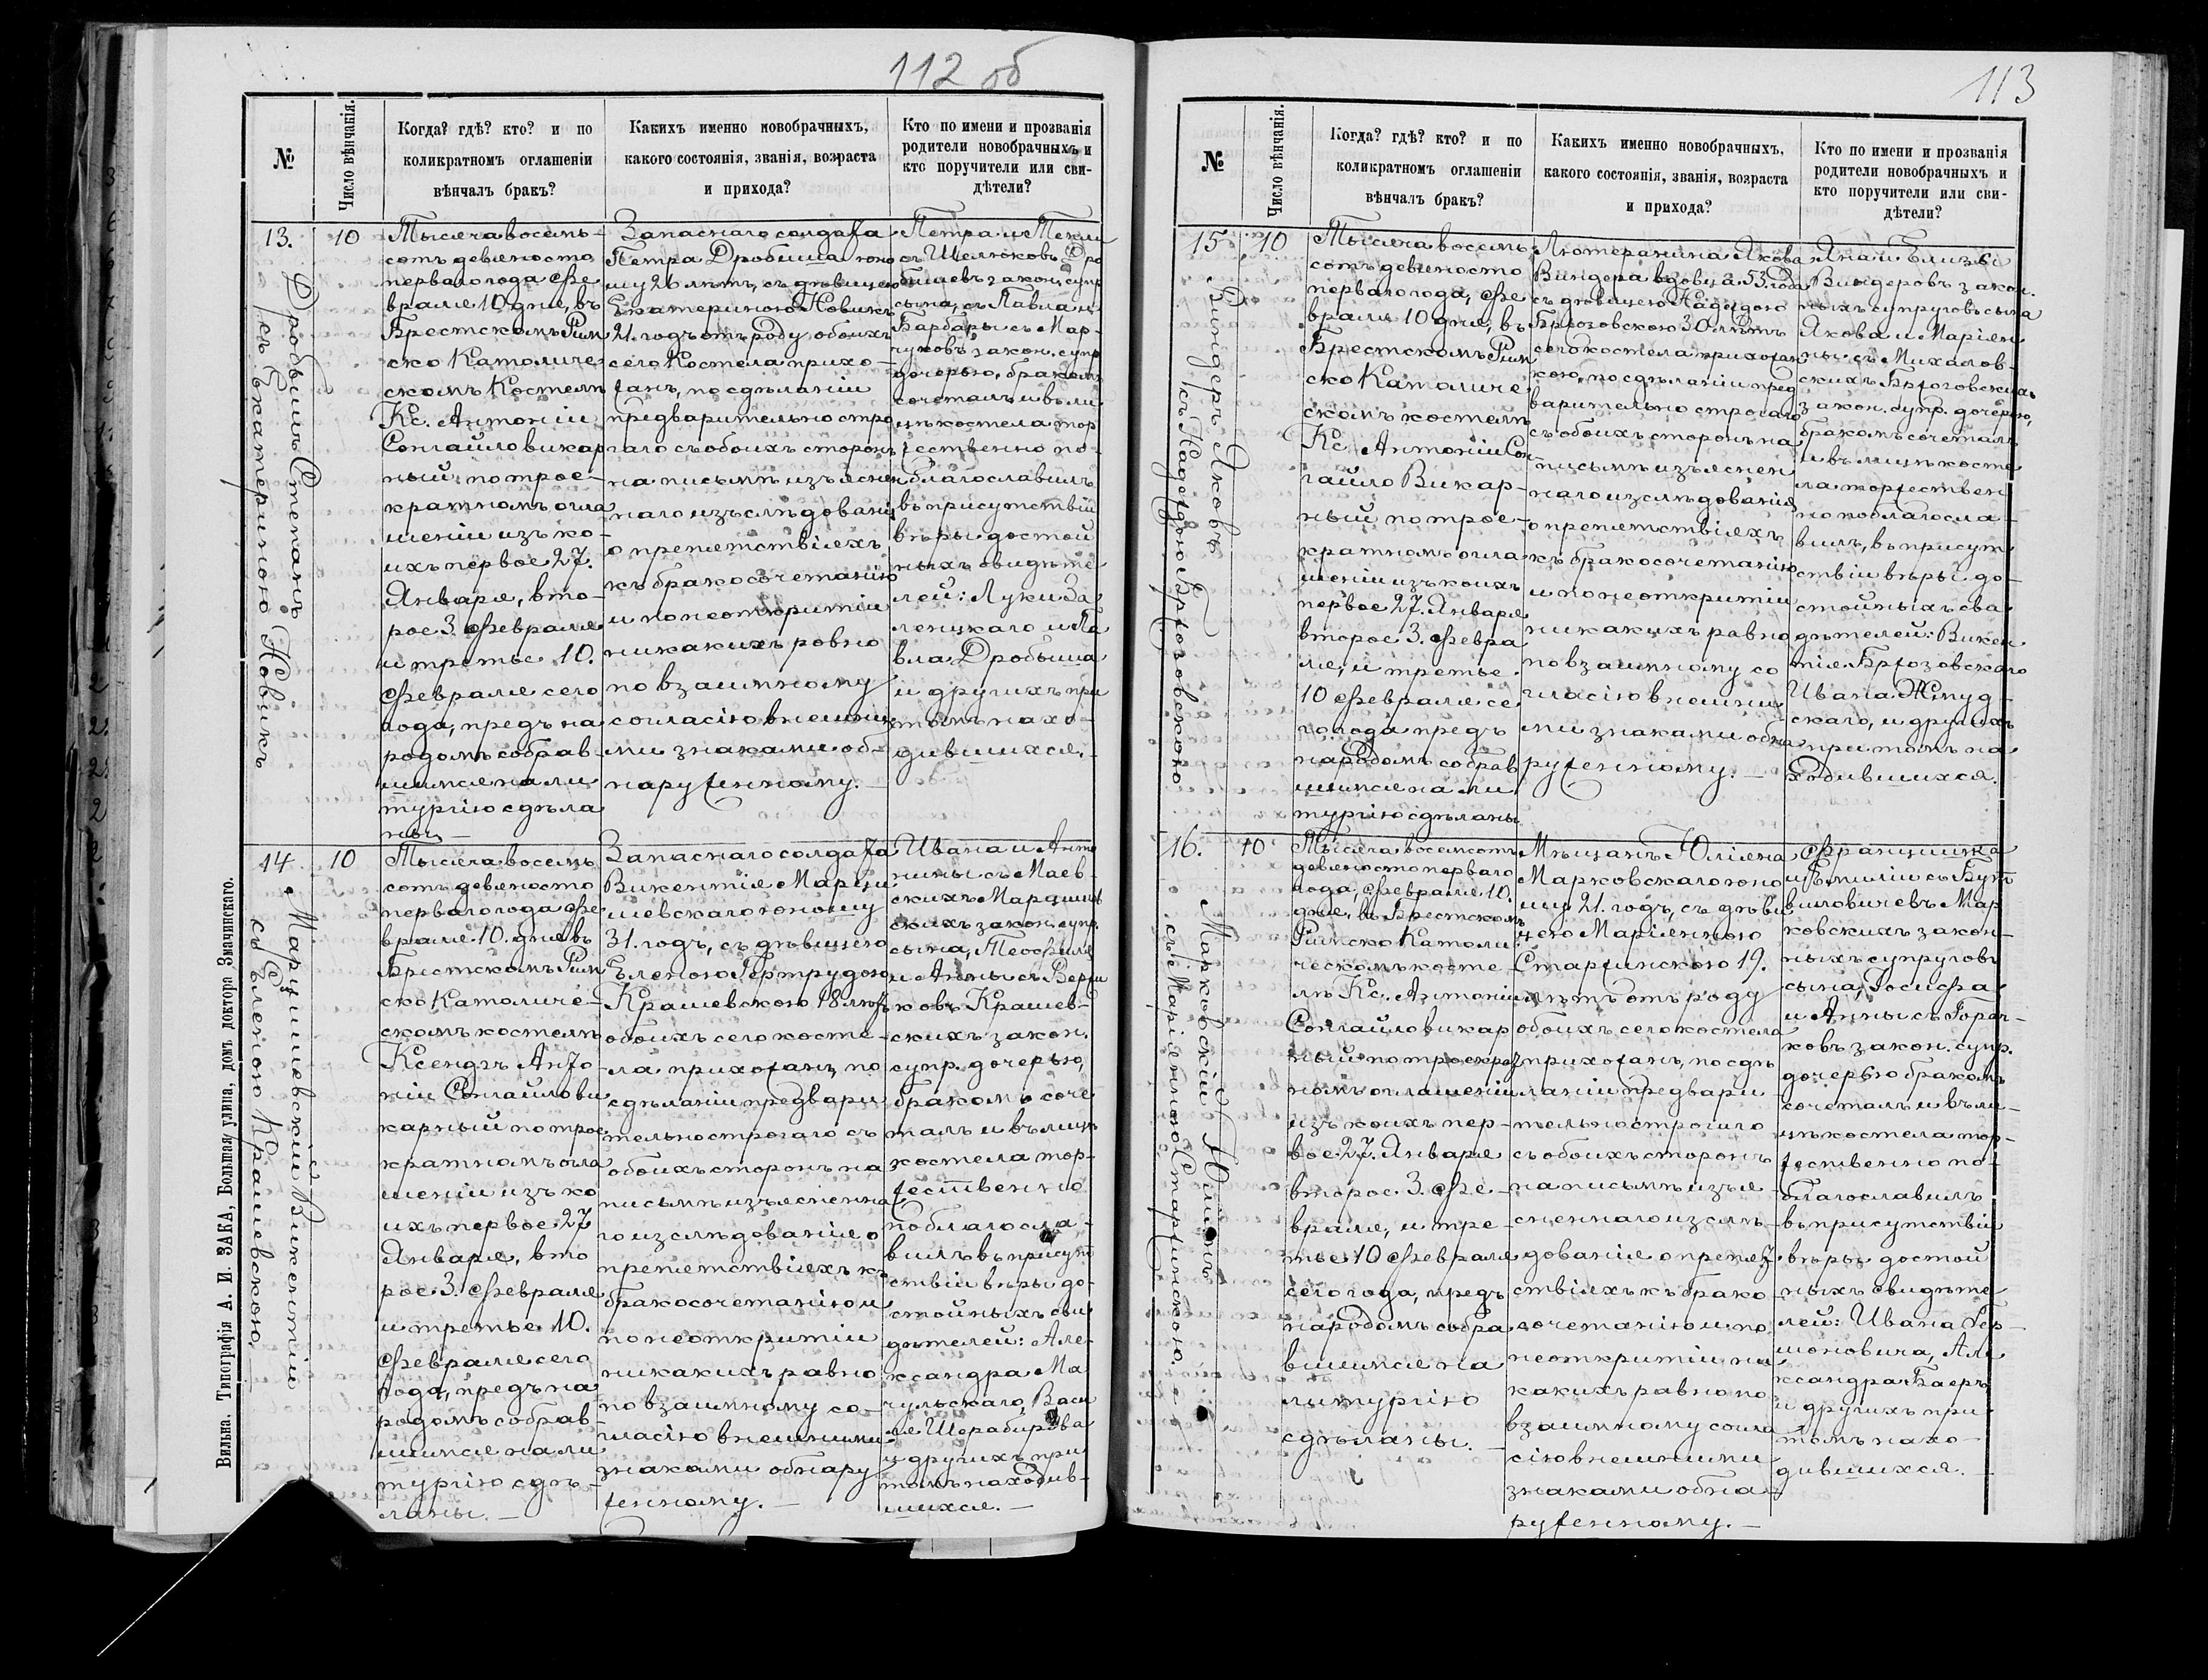 112 об
№
Число вѣнчанія.
Когда? гдѣ? кто? и по
коликратномъ оглашеніи
вѣнчалъ бракъ?
Какихъ именно новобрачныхъ,
какого состоянія, званія, возраста
и прихода?
Кто по имени и прозванія
родители новобрачныхъ и
кто поручители или сви-
дѣтели?
13.
10
Дробышъ Степанъ
съ Екатериною Новикъ
Тысяча восемь-
сотъ девяносто
перваго года Фе
враля 10 дня, въ
Брестскомъ Рим
ско Католиче
скомъ Костелѣ
Кс. Антоній
Сонгайло викар
ный, по трое-
кратномъ огла
шеніи изъ ко-
ихъ первое 27.
Января, вто-
рое 3. Февраля
и третье 10.
Февраля сего
года, предъ на
родомъ собрав-
шимся на ли
тургію сдѣла
ны. —
Запаснаго солдата
Петра Дробыша юно
шу 26 лѣтъ, съ дѣвицею
Екатериною Новикъ
21. годъ отъ роду обоихъ
сего Костела прихо-
жанъ, по сдѣланіи
предварительно стро
гаго съ обоихъ сторонъ
на письмѣ изъясне
наго изъслѣдованія
о препятствіяхъ
къ бракосочетанію
и по неоткрытіи
никакихъ ровно
по взаимному
согласію внешни
ми знаками об-
наруженному. —
Петра и Текли
съ Шелюковъ Дро
бышевъ закон. супр
сына, съ Павла и
Барбары съ Мар-
чуковъ закон. супр
дочерью, бракомъ
сочеталъ и въ ли
цѣ костела тор
жественно по-
благославилъ
въ присутствіи
вѣры достой
ныхъ свидѣте
лей: Луки За
ленцкаго и Па
вла Дробыша
и другихъ при
томъ нахо-
дившихся. —
14
10
Марцишевскій Викентій
съ Еленою Крашевскою. —
Тысяча восемь
сотъ девяносто
перваго года Фе
враля 10. дня въ
Брестскомъ Рим
ско Католиче-
скомъ костелѣ
Ксендзъ Анто
ній Сонгайло ви
карный по трое
кратномъ огла
шеніи изъ ко
ихъ первое 27
Января, вто
рое 3. Февраля
и третье 10.
Февраля сего
года, предъ на
родомъ собрав-
шимся на ли
тургію сдѣ-
ланы. —
Запаснаго солдата
Викентія Марци
шевскаго юношу
31. годъ, съ дѣвицею
Еленою Гертрудою
Крашевскою 18 лѣтъ
обоихъ сего косте-
ла прихожанъ, по
сдѣланіи предвари
тельно строгаго съ
обоихъ сторонъ на
письмѣ изъясненна
го изслѣдованія о
препятствіяхъ къ
бракосочетанію и
по неоткрытіи
никакихъ равно
по взаимному со-
гласію внешними
знаками обнару
женному. —
Ивана и Анто
нины съ Маев-
скихъ Марцишев
скихъ закон. супр.
сына, Теофиля
и Анны съ Верши
ковъ Крашев-
скихъ закон.
супр. дочерью,
бракомъ соче
талъ и въ лицѣ
костела тор-
жественно
поблагосла-
вилъ въ присут
ствіи вѣры до-
стойныхъ сви
дѣтелей: Але-
ксандра Ма
чульскаго, Васи
ля Шорабурова
и другихъ при
томъ находив-
шихся. —
Вильна. Типографія А. И. ЗАКА, Большая улица, домъ доктора Змачинскаго.
113
№
Число вѣнчанія.
Когда? гдѣ? кто? и по
коликратномъ оглашеніи
вѣнчалъ бракъ?
Какихъ именно новобрачныхъ,
какого состоянія, званія, возраста
и прихода?
Кто по имени и прозванія
родители новобрачныхъ и
кто поручители или сви-
дѣтели?
15
10
Виндеръ Яковъ
съ Надеждою Бржозовскою
Тысяча восемь
сотъ девяносто
перваго года, Фе
враля 10 дня, въ
Брестскомъ Рим
ско Католиче
скомъ костелѣ
Кс. Антоній Сон
гайло Викар-
ный по трое-
кратномъ огла
шеніи изъ коихъ
первое 27. Января
второе 3. Февра
ля, и третье
10 Февраля се
го года предъ
народомъ собрав
шимся на ли
тургію сдѣланы
Лютеранина Якова
Виндера вдовца 53 года
съ дѣвицею Надеждою
Бржозовскою 30 лѣтъ
сего костела прихожан
кою, по сдѣланіи пред
варительно строгаго
съ обоихъ сторонъ на
письмѣ изъяснен
наго изслѣдованія
о препятствіяхъ
къ бракосочетанію
и по неоткрытіи
никакихъ равно
по взаимному со
гласію внешни
ми знаками обна
руженному. —
Яна и Елизы
Виндеровъ закон.
ныхъ супруговъ сына
Якова и Маріян
ны съ Михалов-
скихъ Бржозовскихъ
закон. супр. дочерью,
бракомъ сочеталъ
и въ лицѣ косте
ла торжествен
но поблагосла-
вилъ, въ присут
ствіи вѣры до-
стойныхъ сви
дѣтелей: Викен
тія Бржозовскаго
Ивана Жмуд-
скаго, и другихъ
при томъ на
ходившихся.
16.
10
Марковскій Юліянъ
съ Маріянною Старжинскою.
Тысяча восемсотъ
девяносто перваго
года, Февраля 10.
дня, въ Брестскомъ
Римско Католи
ческомъ косте
лѣ Кс. Антоній
Сонгайло викар
ный по троекрат
номъ оглашеніи
изъ коихъ пер-
вое 27. Января
второе. 3. Фе-
враля, и тре-
тье 10 Февраля
сего года, предъ
народомъ собра
вшимся на
литургію
сдѣланы. —
Мѣщанъ Юліяна
Марковскаго юно
шу 21. годъ, съ дѣви
цею Маріянною
Старжинскою 19.
лѣтъ отъ роду
обоихъ сего костела
прихожанъ, по сдѣ
ланіи предвари-
тельно строгаго
съ обоихъ сторонъ
на письмѣ изъя-
сненнаго изслѣ-
дованія о препят
ствіяхъ къ брако
сочетанію и по
неоткрытіи ни
какихъ равно по
взаимному согла
сію внешними
знаками обна-
руженному. —
Францишка
и Емиліи съ Бут
виловичевъ Мар
ковскихъ закон-
ныхъ супруговъ
сына, Іосифа
и Анны съ Горач-
ковъ закон. супр.
дочерью бракомъ
сочеталъ и въ ли-
цѣ костела тор-
жественно по-
благославилъ
въ присутствіи
вѣры достой
ныхъ свидѣте
лей: Ивана Гер-
моновича, Але
ксандра Баеръ
и другихъ при
томъ нахо-
дившихся. —